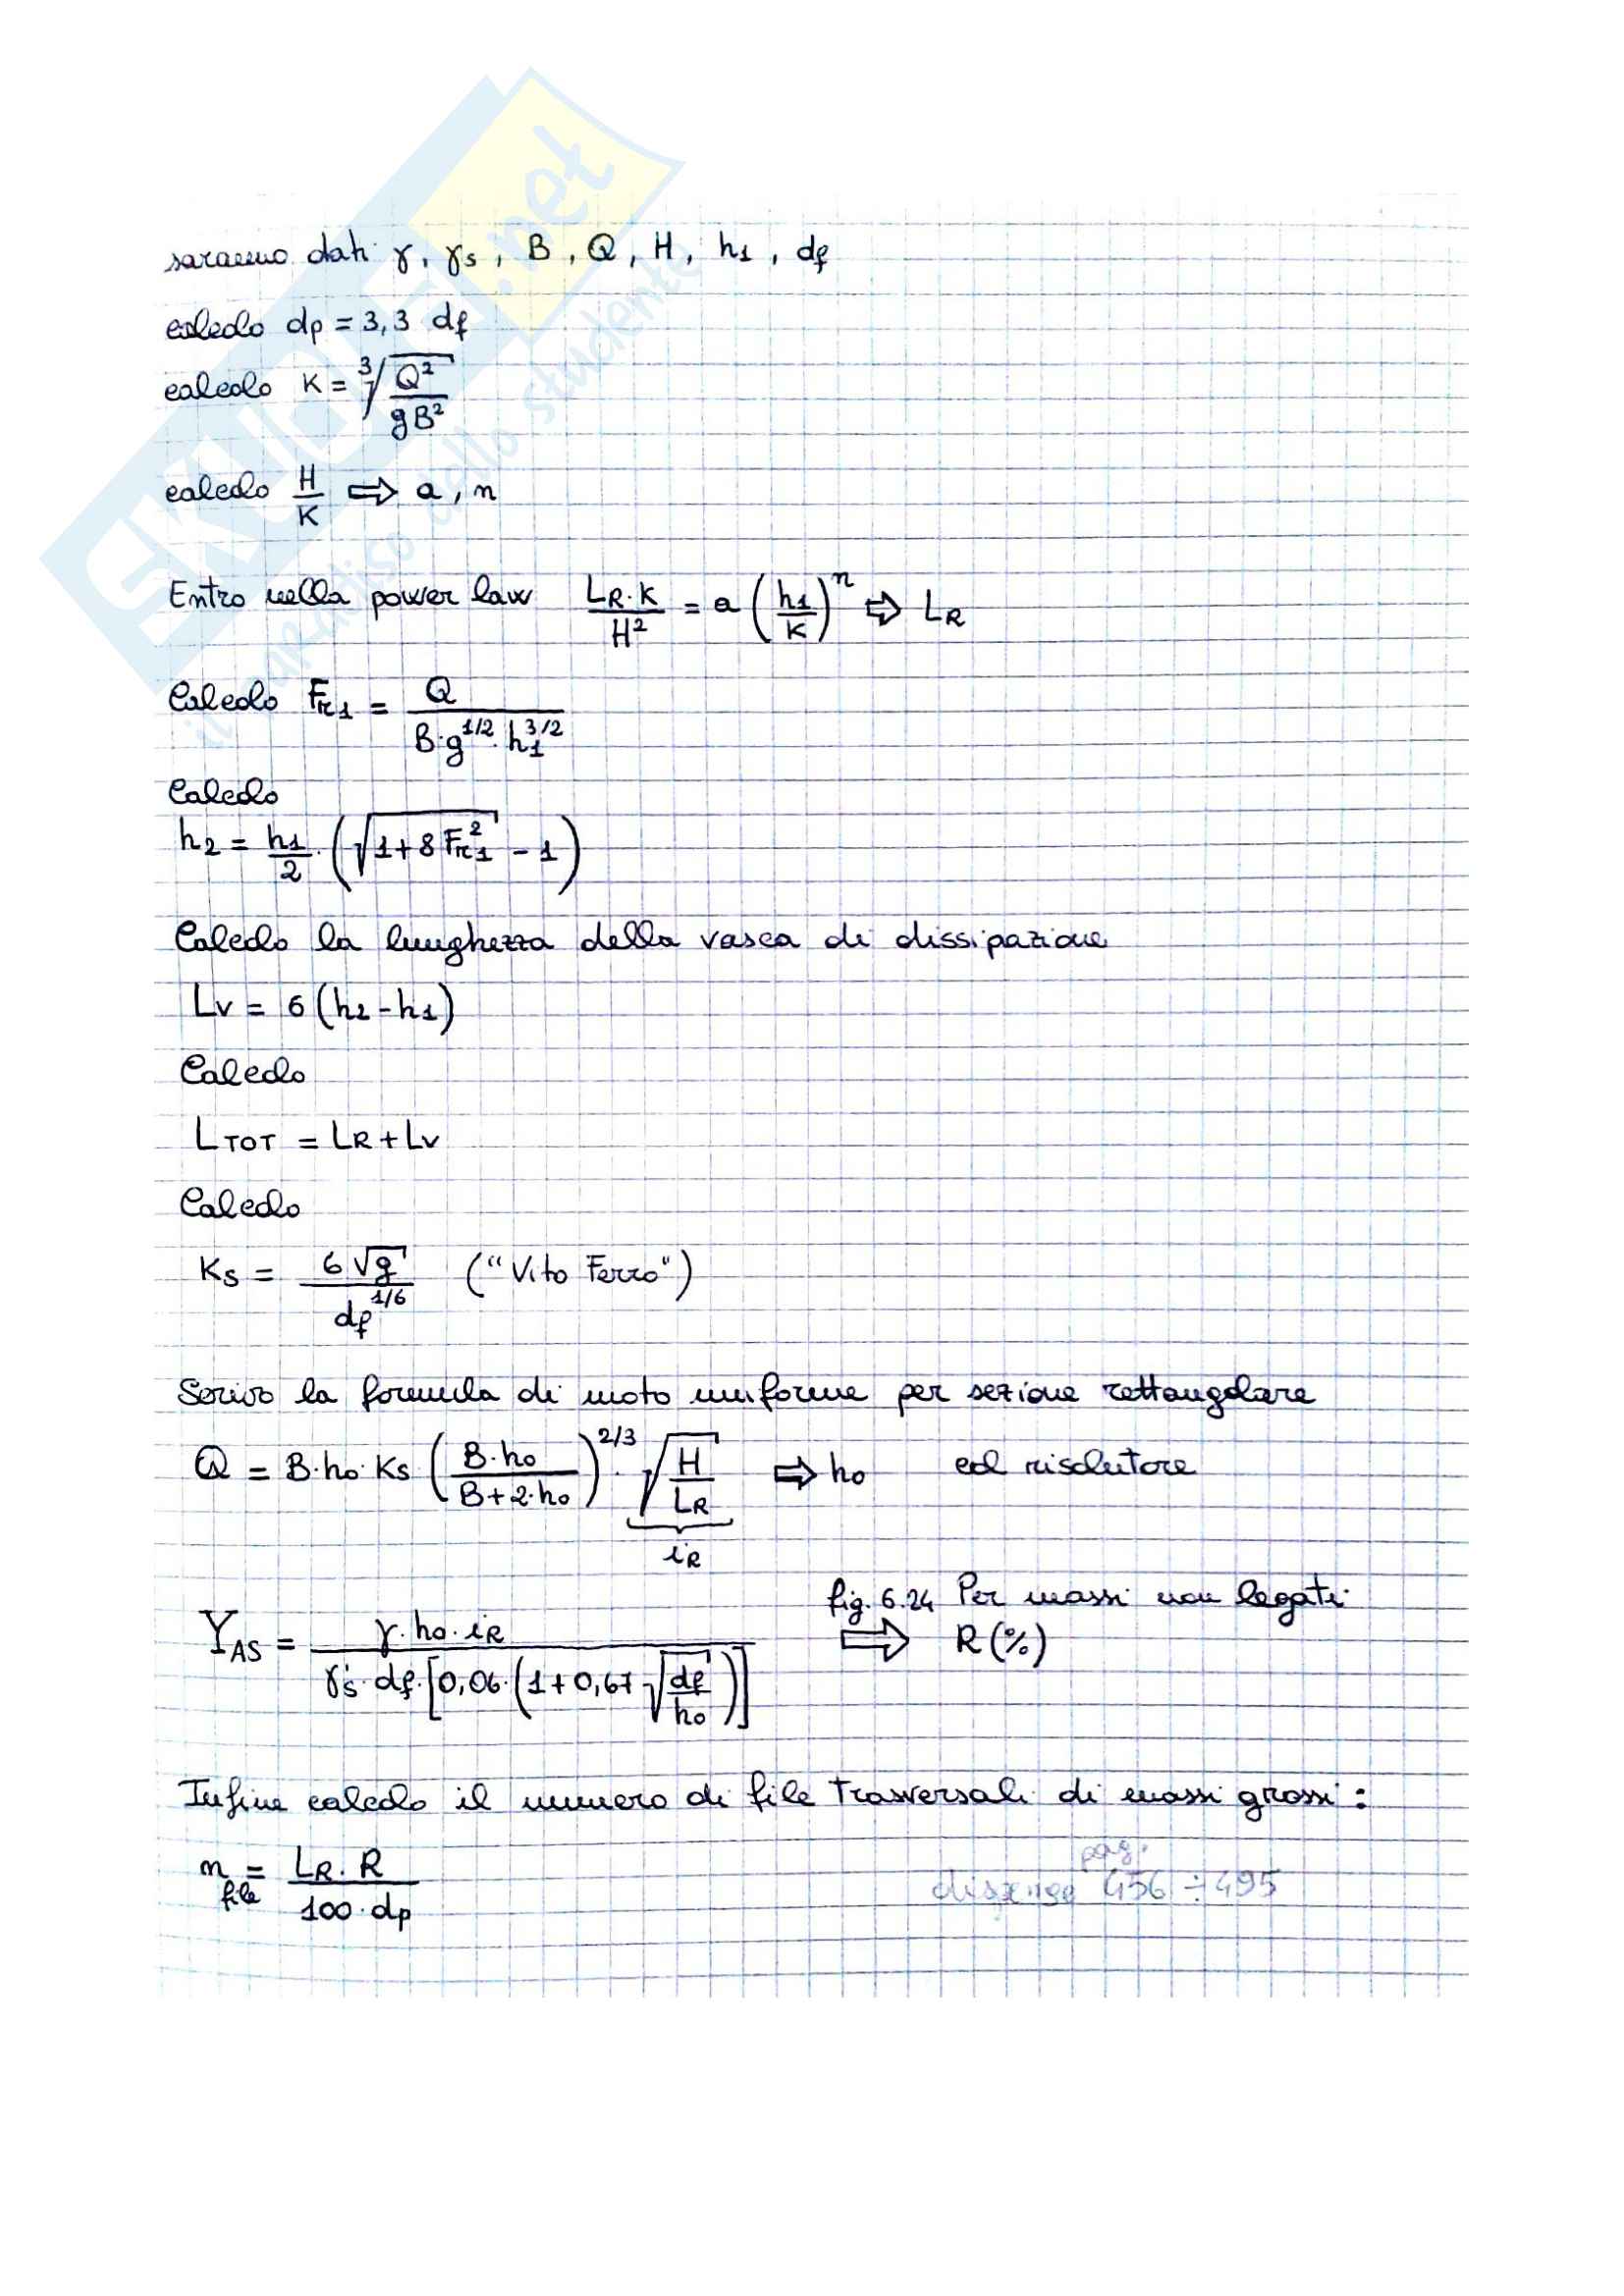 SKUOLA.net
il paradiso dello studente
saranno dati γ, γs, B, Q, H, h1, df
calcolo dp = 3,3 df
calcolo K = ∛(Q²/(gB²))
calcolo H/K ⇒ a, n
Entro nella power law (LR·K)/H² = a (h1/K)^n ⇒ LR
Calcolo Fr1 = Q/(B·g^1/2·h1^3/2)
Calcolo
h2 = h1/2·(√(1+8Fr1²) - 1)
Calcolo la lunghezza della vasca di dissipazione
Lv = 6(h2-h1)
Calcolo
LTOT = LR+Lv
Calcolo
Ks = 6√g/df^1/6 ("Vito Ferro")
Scrivo la formula di moto uniforme per sezione rettangolare
Q = B·ho·Ks (B·ho/(B+2·ho))^2/3·√(H/LR) ⇒ ho col risolutore
iR
fig. 6.24 Per massi non legati
YAS = γ·ho·iR/(γs'·df·[0,06·(1+0,67√(df/ho))]) ⇒ R(%)
Infine calcolo il numero di file trasversali di massi grossi:
pag.
n file = LR·R/(100·dp) dispense 456÷495